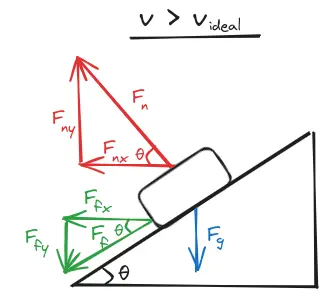 v > v ideal
F n
F ny
F nx θ
F fx
F f θ
F fy
F g
θ